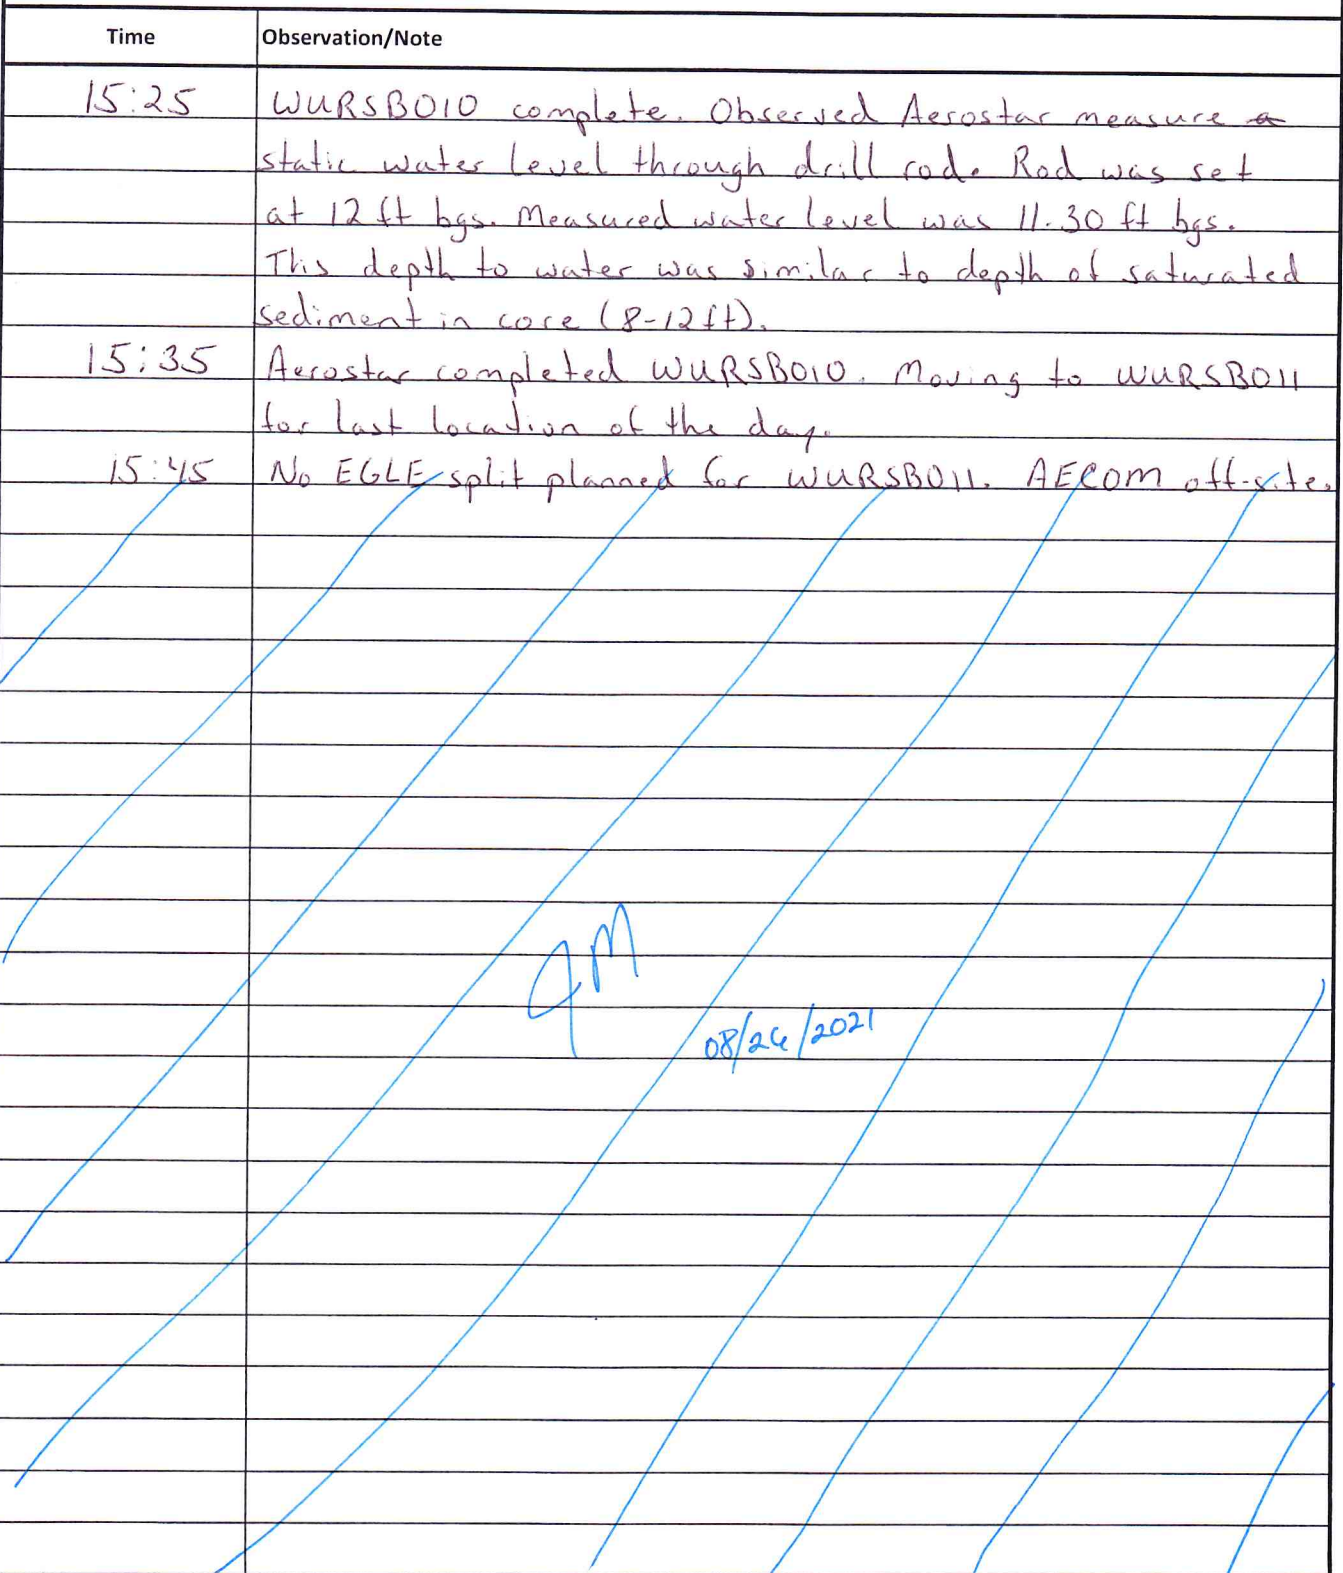 Time Observation/Note
15:25 WURSB010 complete. Observed Aerostar measure a
static water level through drill rod. Rod was set
at 12 ft bgs. Measured water level was 11.30 ft bgs.
This depth to water was similar to depth of saturated
sediment in core (8-12ft).
15:35 Aerostar completed WURSB010. Moving to WURSB011
for last location of the day.
15:45 No EGLE split planned for WURSB011. AECOM off-site.
JM
08/26/2021